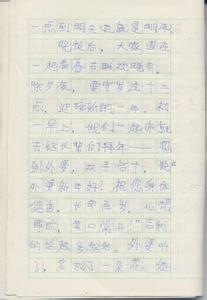 一点到明天也就是明年。
晚饭后，大家围在
一起看春节联欢晚会，
除夕夜，要守岁过十二
点，迎接新的一年。初
一早上，我们一起床就
去给长辈们拜年——
到外婆，双手合十，说"
外婆新年好！祝您身体
健康，长命百岁，心想
事成，笑口常开！"吉利
的话越多越好。外婆听
了，笑成了一朵花，给